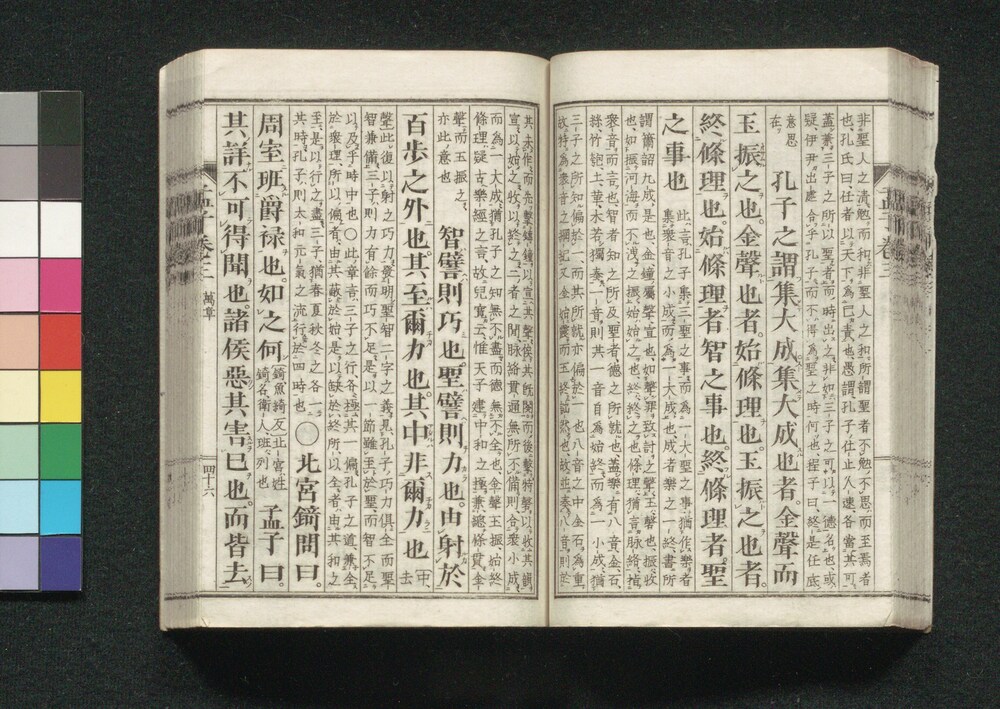 非聖人之清勉而和非聖人之和所謂聖者不勉不思而至焉者
也孔氏曰任者以天下為己責也愚謂孔子仕止久速各當其可
蓋兼三子之所以聖者而時出之非如三子之可以一德名也或
疑伊尹出處合乎孔子而不得為聖之時何也程子曰終是任底
意思
在
孔子之謂集大成集大成也者金聲而
玉振之也金聲也者始條理也玉振之也者
終條理也始條理者智之事也終條理者聖
之事也
此言孔子集三聖之事而為一大聖之事猶作樂者
集衆音之小成而為一大成也成者樂之一終書所
謂簫韶九成是也金鐘屬聲宣也如聲罪致討之聲玉磬也振收
也如振河海而不洩之振始始之也終終之也條理猶言脉絡指
衆音而言也智者知之所及聖者德之所就也蓋樂有八音金石
絲竹匏土革木若獨奏一音則其一音自為始終而為一小成猶
三子之所知偏於一而其所就亦偏於一也八音之中金石為重
故特為衆音之綱紀又金始震而玉終詘然也故並奏八音則於
孟子卷三
其未作而先擊鎛鐘以宣其聲俟其既闋而後擊特磬以收其韻
宣以始之收以終之二者之間脉絡貫通無所不備則合衆小成
而為一大成猶孔子之知無不盡而德無不全也金聲玉振始終
條理疑古樂經之言故兒寬云惟天子建中和之極兼總條貫金
聲而玉振之
亦此意也
智譬則巧也聖譬則力也由射於
百步之外也其至爾力也其中非爾力也
中
去
聲此復以射之巧力發明聖智二字之義見孔子巧力俱全而聖
智兼備三子則力有餘而巧不足是以一節雖至於聖而智不足
以及乎時中也○此章言三子之行各極其一偏孔子之道兼全
於衆理所以偏者由其蔽於始是以缺於終所以全者由其知之
至是以行之盡三子猶春夏秋冬之各一
其時孔子則太和元氣之流行於四時也
○北宮錡問曰
周室班爵禄也如之何
錡魚綺反北宮姓
錡名衛人班列也
孟子曰
其詳不可得聞也諸侯惡其害己也而皆去
孟子卷三 萬章 四十六